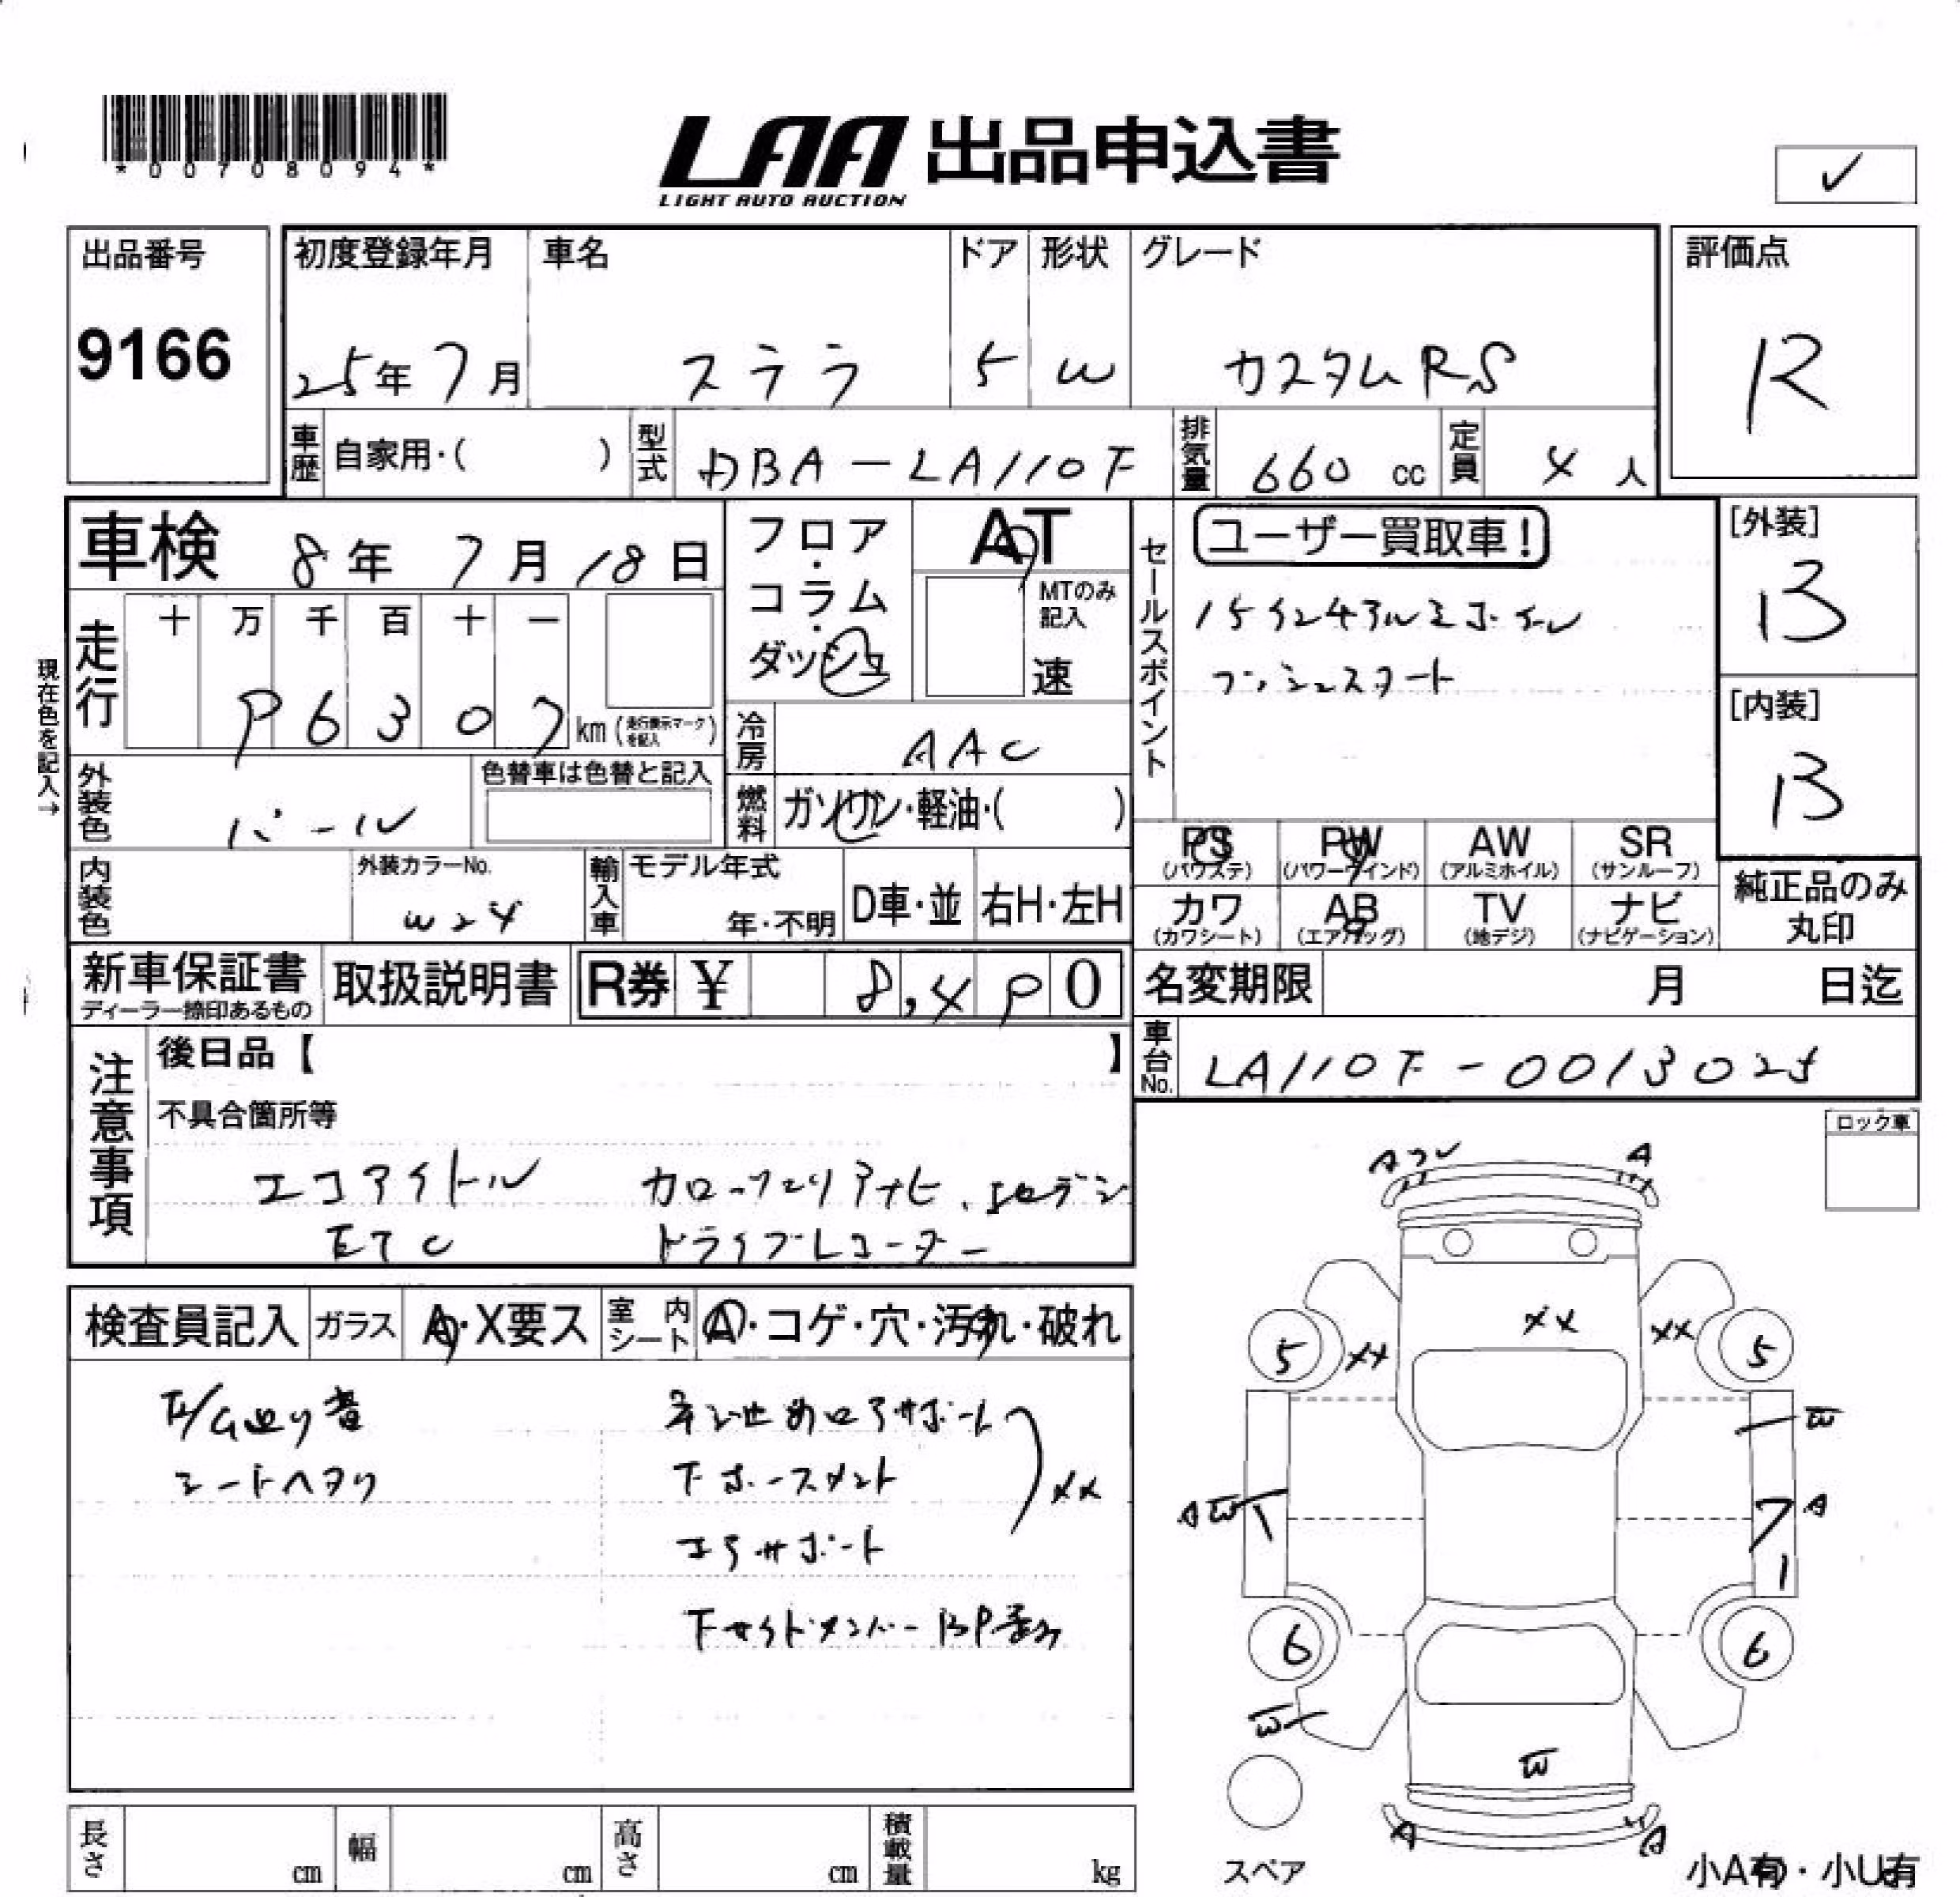 *00708094*
LAA 出品申込書
LIGHT AUTO AUCTION
✓
出品番号
9166
初度登録年月
25年7月
車名
ステラ
ドア
5
形状
W
グレード
カスタムRS
評価点
R
車歴 自家用・( )
型式 DBA-LA110F
排気量 660 cc
定員 4人
車検 8年7月18日
フロア・コラム・ダッシュ
AT
MTのみ記入
速
セールスポイント
ユーザー買取車!
15インチアルミホイール
プッシュスタート
[外装]
B
[内装]
B
現在色を記入→
走行
十 万 千 百 十 一
96307 km (走行表示マークを記入)
冷房 AAC
外装色 パール
色替車は色替と記入
燃料 ガソリン・軽油・( )
内装色
外装カラーNo.
W24
輸入車
モデル年式
年・不明
D車・並
右H・左H
PS (パワステ)
PW (パワーウインド)
AW (アルミホイル)
SR (サンルーフ)
カワ (カワシート)
AB (エアバッグ)
TV (地デジ)
ナビ (ナビゲーション)
純正品のみ丸印
新車保証書
ディーラー捺印あるもの
取扱説明書
R券 ¥ 8,490
名変期限 月 日迄
車台No. LA110F-0013025
注意事項
後日品【 】
不具合箇所等
エコアイドル カロッツェリアナビ、地デジ
ETC ドライブレコーダー
ロック車
検査員記入
ガラス A・X要ス
室内シート A・コゲ・穴・汚れ・破れ
シートヘタリ
コアサポート
XX
下サイドメンバー
A
A
XX
XX
XX
5
5
W
AW
A
6
6
W
W
A
A
スペア
小A有・小U有
長さ cm
幅 cm
高さ cm
積載量 kg